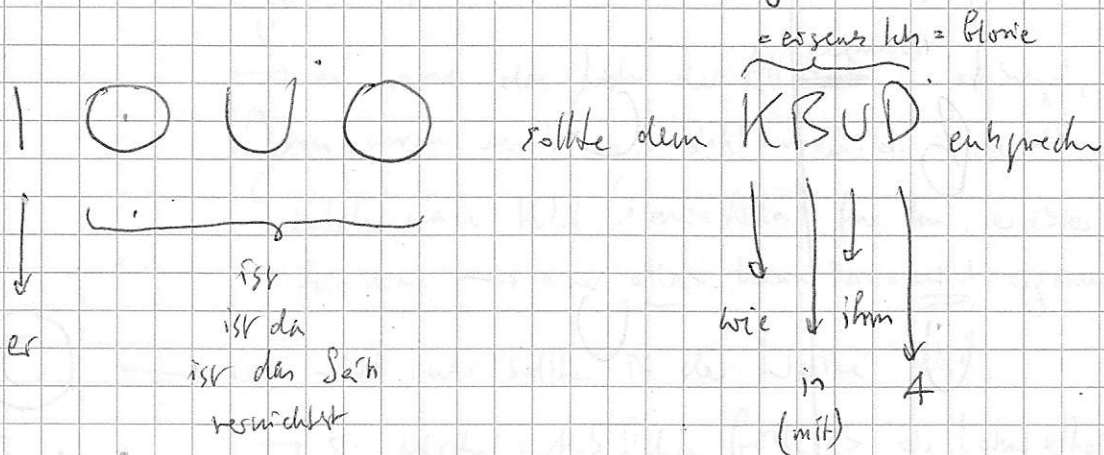 = eigenes Ich = Glorie
I O U O sollte dem KBUD entsprechen
er
ist
ist da
ist das Sein
vernichtet
wie
in
(mit)
ihm
4